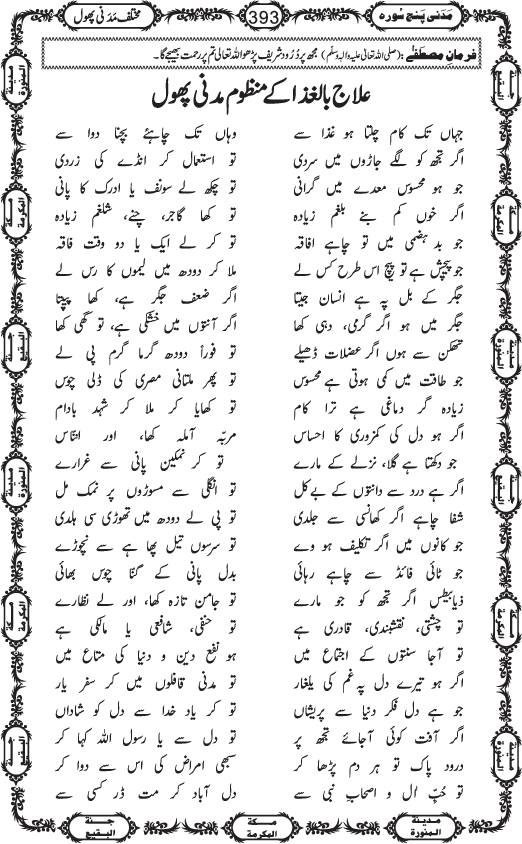 مَدَنی پنج سُورہ
393
مختلف مَدَنی پھول
فرمانِ مصطَفٰے : (صلی اللہ تعالیٰ علیہ والہ وسلّم) مجھ پر دُرُود شریف پڑھو اللہ تعالیٰ تم پر رحمت بھیجے گا۔
علاج بالغذا کے منظوم مدنی پھول
جہاں تک کام چلتا ہو غذا سے وہاں تک چاہئے بچنا دوا سے
اگر تجھ کو لگے جاڑوں میں سردی تو استعمال کر انڈے کی زردی
جو ہو محسوس معدے میں گرانی تو چکھ لے سونف یا ادرک کا پانی
اگر خوں کم بنے بلغم زیادہ تو کھا گاجر، چنے، شلغم زیادہ
جو بد ہضمی میں تو چاہے افاقہ تو کر لے ایک یا دو وقت فاقہ
جو پیچش ہے تو پیچ اس طرح کس لے ملا کر دودھ میں لیموں کا رس لے
جگر کے بل پہ ہے انسان جیتا اگر ضعف جگر ہے، کھا پپیتا
جگر میں ہو اگر گرمی، دہی کھا اگر آنتوں میں خشکی ہے، تو گھی کھا
تھکن سے ہوں اگر عضلات ڈھیلے تو فوراً دودھ گرما گرم پی لے
جو طاقت میں کمی ہوتی ہے محسوس تو پھر ملتانی مصری کی ڈلی چوس
زیادہ گر دماغی ہے ترا کام تو کھایا کر ملا کر شہد بادام
اگر ہو دل کی کمزوری کا احساس مربّہ آملہ کھا، اور انناس
جو دکھتا ہے گلا، نزلے کے مارے تو کر نمکین پانی سے غرارے
اگر ہے درد سے دانتوں کے بے کل تو انگلی سے مسوڑوں پر نمک مل
شفا چاہے اگر کھانسی سے جلدی تو پی لے دودھ میں تھوڑی سی ہلدی
جو کانوں میں اگر تکلیف ہو وے تو سرسوں تیل پھاہا سے نچوڑے
جو ٹائی فائڈ سے چاہے رہائی بدل پانی کے گنّا چوس بھائی
ذیابیطس اگر تجھ کو جو مارے تو جامن تازہ کھا، اور لے نظارے
تو چشتی، نقشبندی، قادری ہے تو حنفی، شافعی یا مالکی ہے
تو آجا سنتوں کے اجتماع میں ہو نفع دین و دنیا کی متاع میں
اگر ہو تیرے دل پہ غم کی یلغار تو مدنی قافلوں میں کر سفر یار
جو ہے دل فکر دنیا سے پریشاں تو کر یاد خدا سے دل کو شاداں
اگر آفت کوئی آجائے تجھ پر تو دل سے یا رسول اللہ کہا کر
درود پاک تو ہر دم پڑھا کر سبھی امراض کی اس سے دوا کر
تو حُبِّ آل و اصحابِ نبی سے دل آباد کر مت ڈر کسی سے
مدینۃ المنورۃ
مکۃ المکرمۃ
جنۃ البقیع